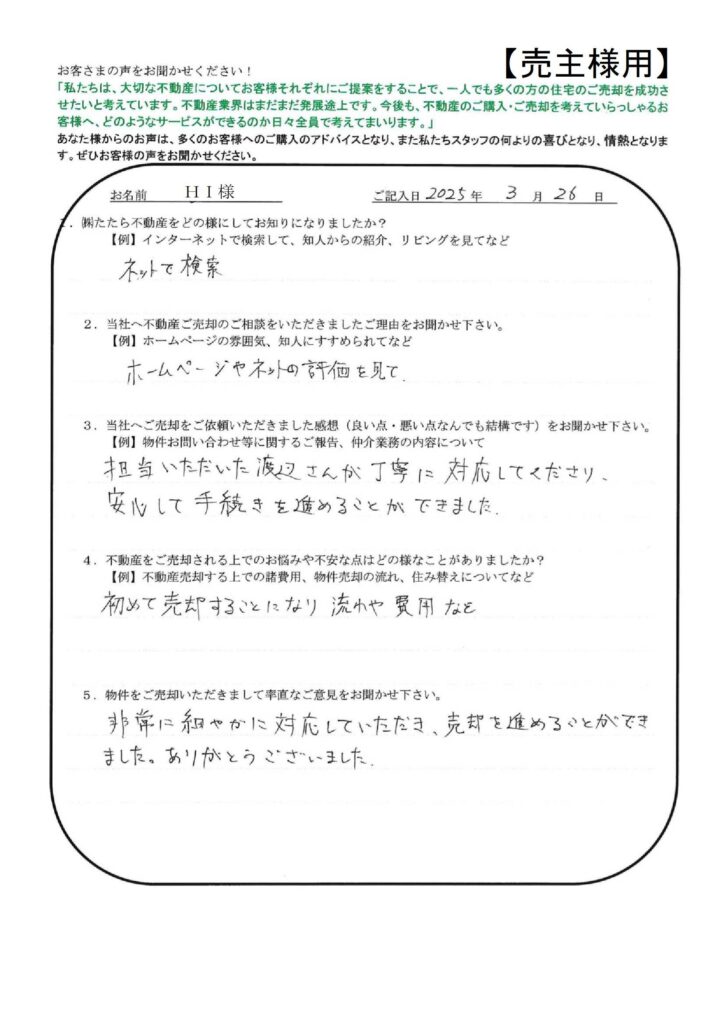 【売主様用】
お客さまの声をお聞かせください！
「私たちは、大切な不動産についてお客様それぞれにご提案をすることで、一人でも多くの方の住宅のご売却を成功さ
せたいと考えています。不動産業界はまだまだ発展途上です。今後も、不動産のご購入・ご売却を考えていらっしゃるお
客様へ、どのようなサービスができるのか日々全員で考えてまいります。」
あなた様からのお声は、多くのお客様へのご購入のアドバイスとなり、また私たちスタッフの何よりの喜びとなり、情熱となりま
す。ぜひお客様の声をお聞かせください。
お名前 ＨＩ様 ご記入日 2025 年 3 月 26 日
1．㈱たたら不動産をどの様にしてお知りになりましたか？
【例】インターネットで検索して、知人からの紹介、リビングを見てなど
ネットで検索
2．当社へ不動産ご売却のご相談をいただきましたご理由をお聞かせ下さい。
【例】ホームページの雰囲気、知人にすすめられてなど
ホームページやネットの評価を見て.
3．当社へご売却をご依頼いただきました感想（良い点・悪い点なんでも結構です）をお聞かせ下さい。
【例】物件お問い合わせ等に関するご報告、仲介業務の内容について
担当いただいた渡辺さんが丁寧に対応してくださり、
安心して手続きを進めることができました.
4．不動産をご売却される上でのお悩みや不安な点はどの様なことがありましたか？
【例】不動産売却する上での諸費用、物件売却の流れ、住み替えについてなど
初めて売却することになり 流れや 費用など
5．物件をご売却いただきまして率直なご意見をお聞かせ下さい。
非常に細やかに対応していただき、売却を進めることができ
ました。ありがとうございました.